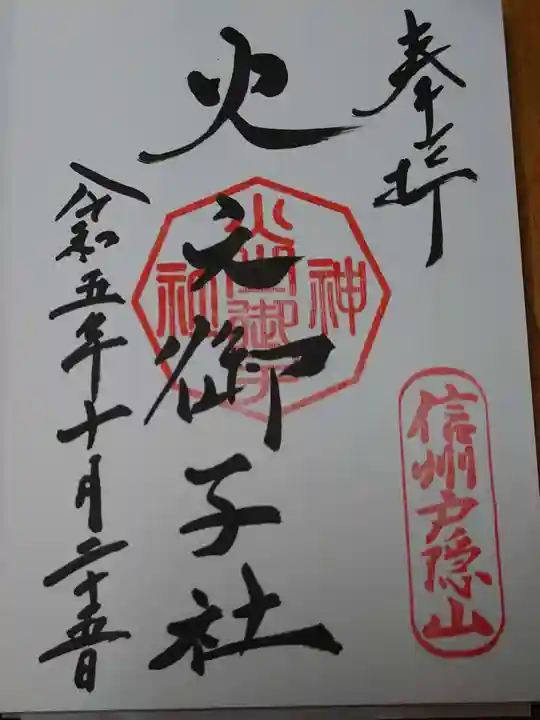 奉拝
信州戸隠山
火之御子社
神社
令和五年十月二十五日